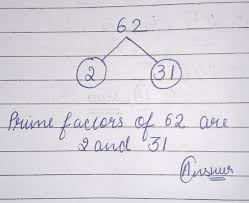 62
2 31
Prime factors of 62 are
2 and 31
Answer